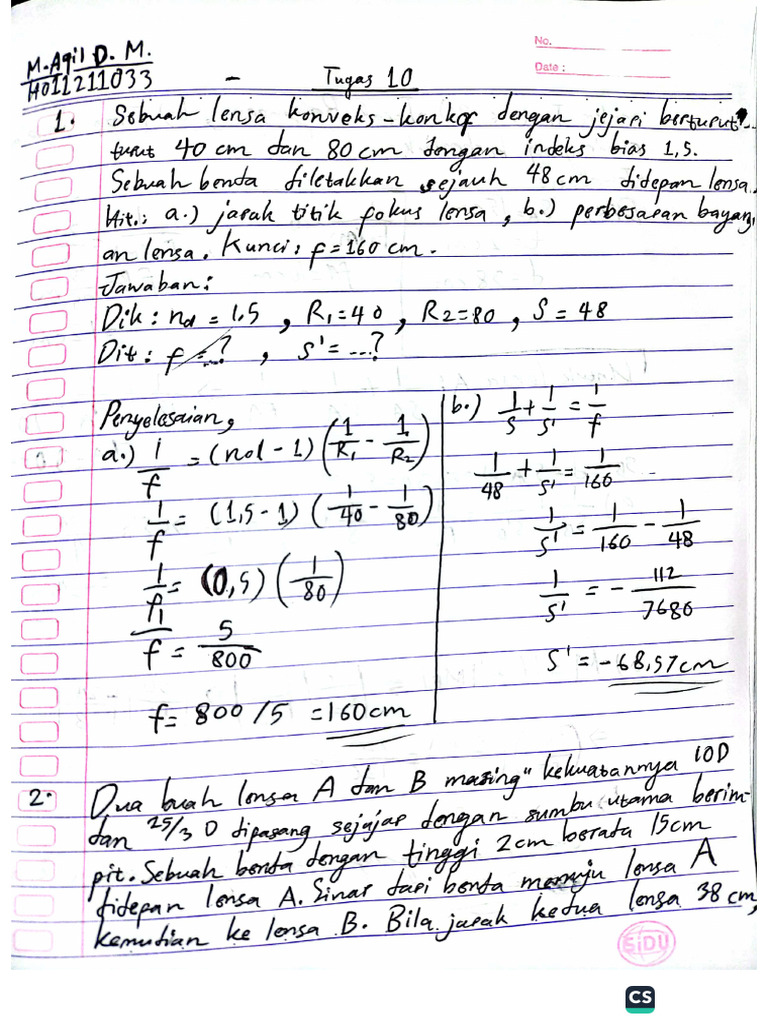 No.
Date :
M. Aqil D. M.
H011211033
- Tugas 10
1. Sebuah lensa konveks-konkaf dengan jejari berturut"-
turut 40 cm dan 80 cm dengan indeks bias 1,5.
Sebuah benda diletakkan sejauh 48 cm didepan lensa.
Hit.: a.) jarak titik fokus lensa, b.) perbesaran bayang
an lensa. Kunci: f = 160 cm.
Jawaban:
Dik: nd = 1.5, R1 = 40, R2 = 80, S = 48
Dit: f = ...?, S' = ...?
Penyelesaian,
a.) 1/f = (nd - 1) (1/R1 - 1/R2)
1/f = (1,5 - 1) (1/40 - 1/80)
1/f = (0,5) (1/80)
1/f = 5/800
f = 800/5 = 160 cm
b.) 1/S + 1/S' = 1/f
1/48 + 1/S' = 1/160
1/S' = 1/160 - 1/48
1/S' = - 112/7680
S' = -68,57 cm
2. Dua buah lensa A dan B masing" kekuatannya 10D
dan 25/3 D dipasang sejajar dengan sumbu utama berim-
pit. Sebuah benda dengan tinggi 2cm berada 15cm
didepan lensa A. Sinar dari benda menuju lensa A
kemudian ke lensa B. Bila jarak kedua lensa 38 cm,
SIDU
CS